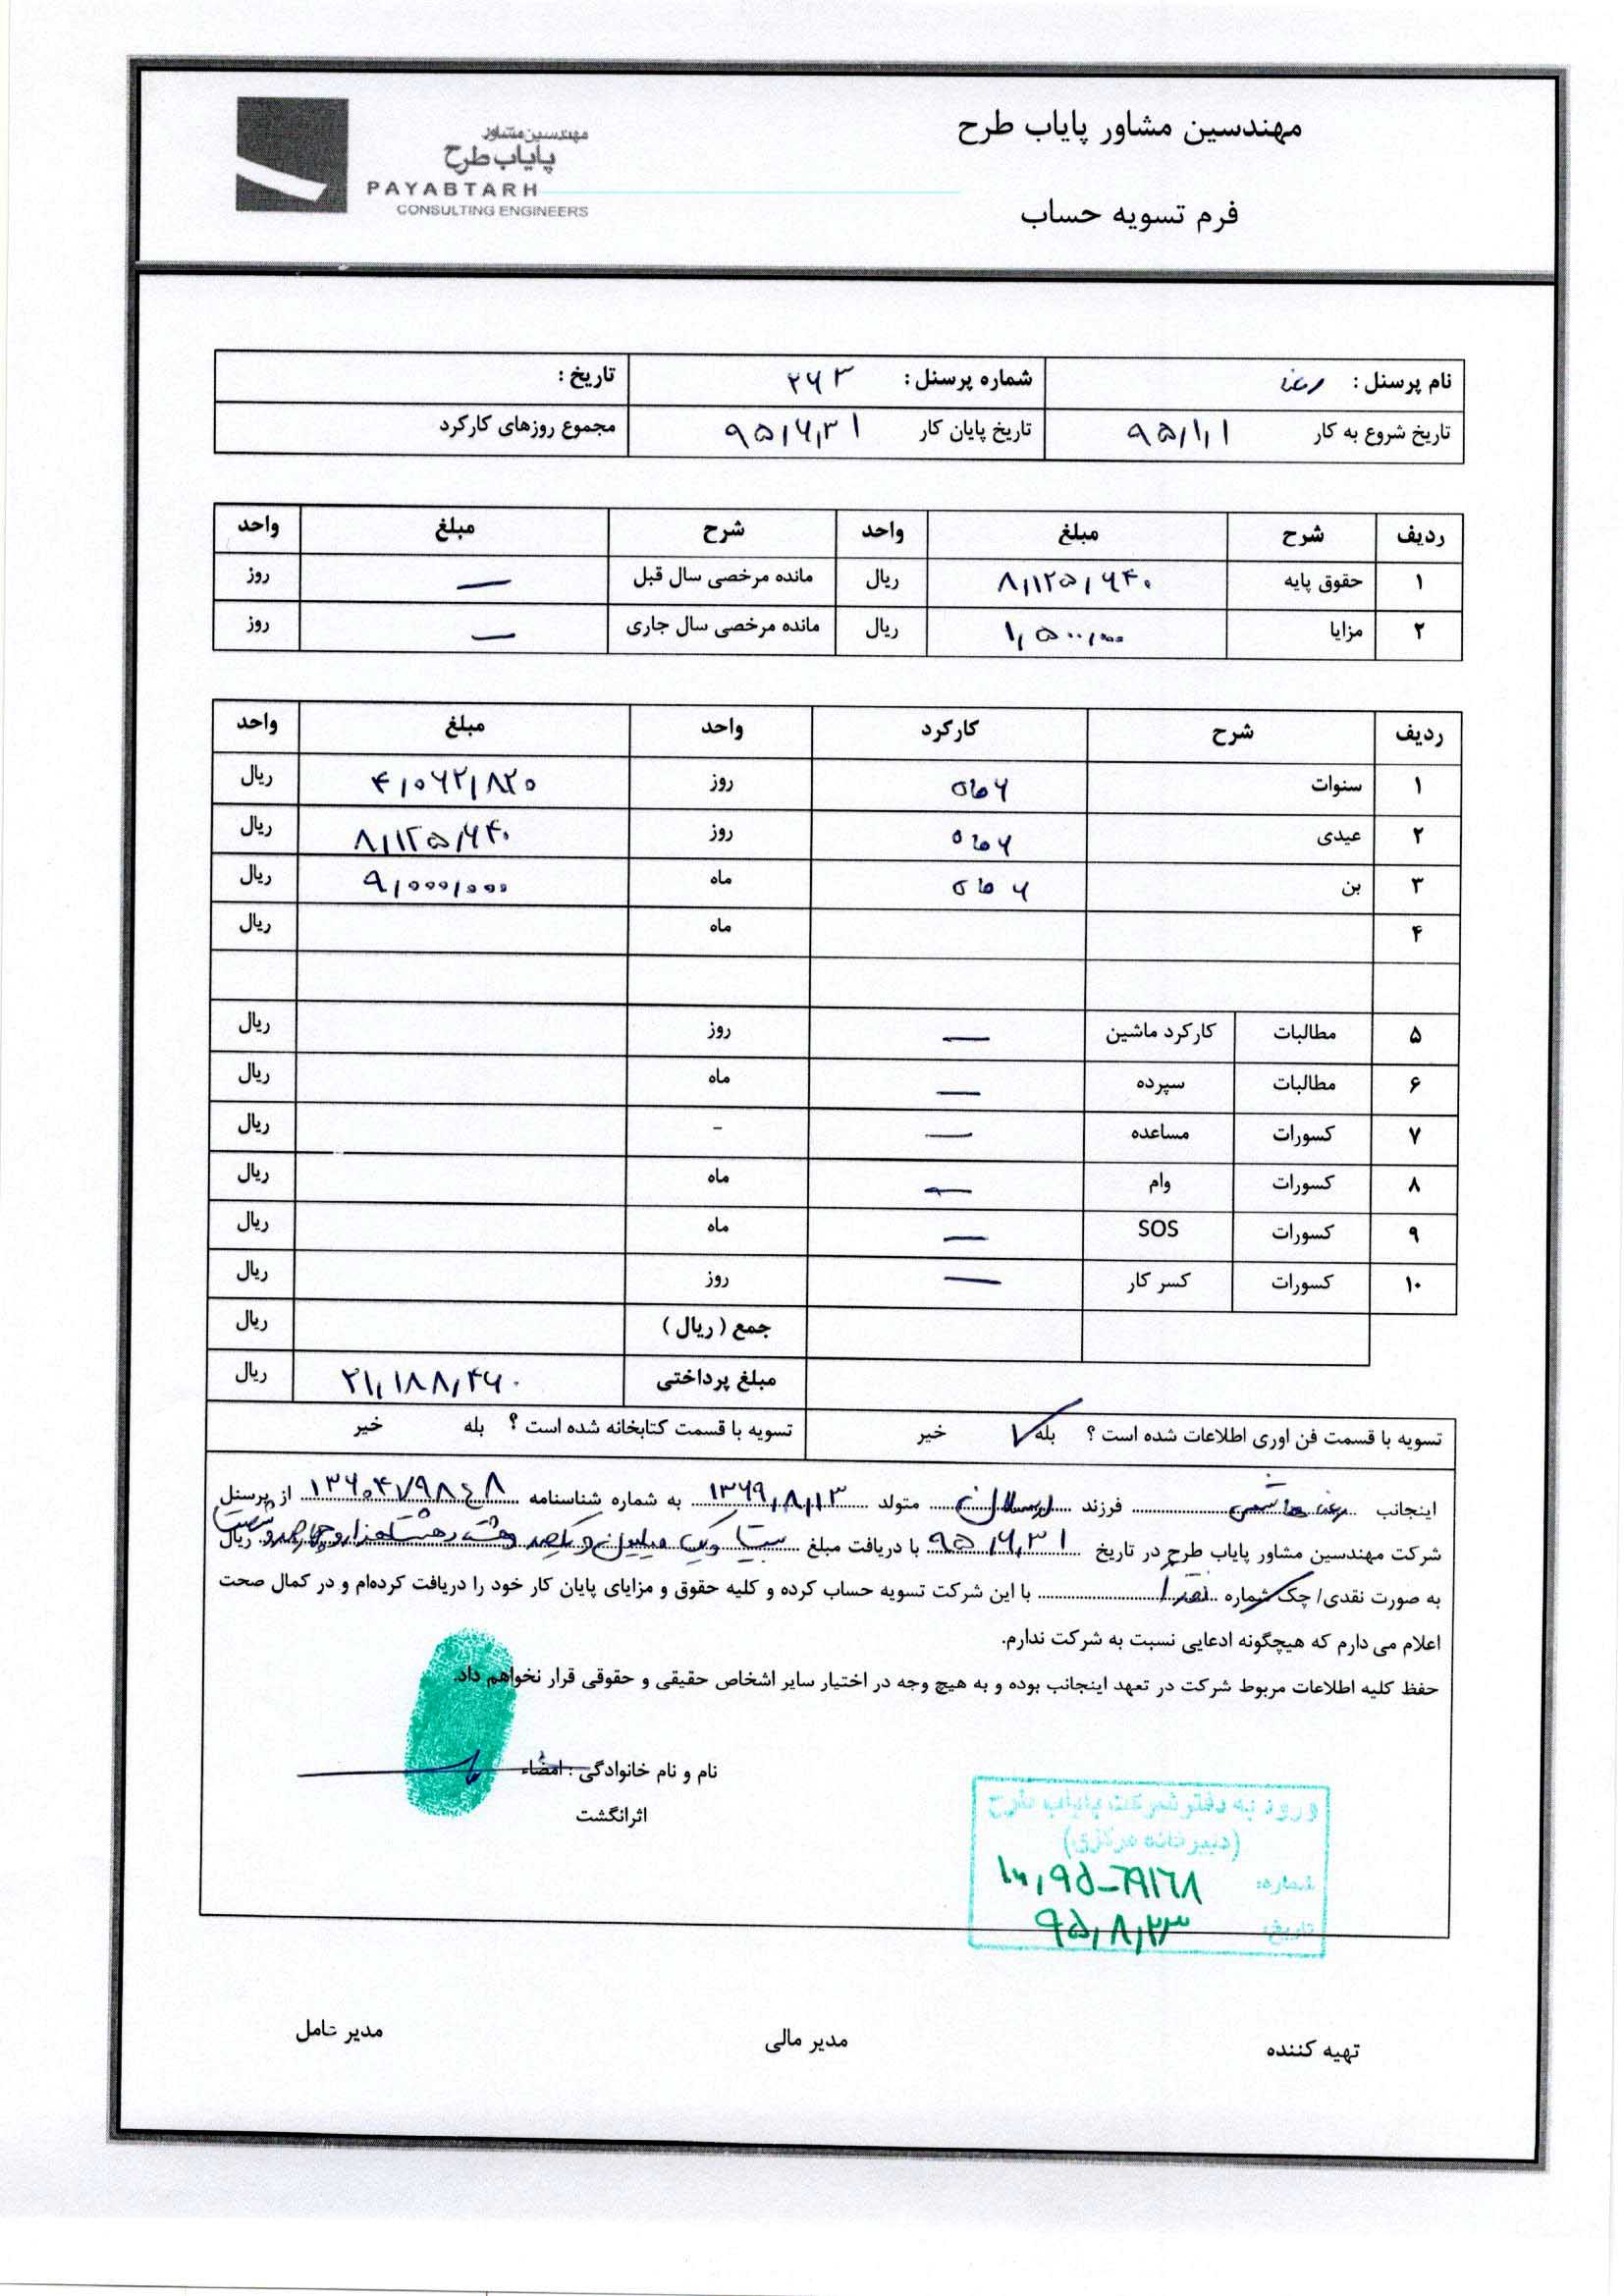 مهندسین مشاور پایاب طرح
مهندسین مشاور
پایاب طرح
PAYABTARH
CONSULTING ENGINEERS
فرم تسویه حساب
نام پرسنل : شماره پرسنل : ۲۶۳ تاریخ :
تاریخ شروع به کار ۹۵/۱/۱ تاریخ پایان کار ۹۵/۶/۳۱ مجموع روزهای کارکرد
ردیف شرح مبلغ واحد شرح مبلغ واحد
۱ حقوق پایه ۸,۱۲۵,۶۴۰ ریال مانده مرخصی سال قبل — روز
۲ مزایا ۱,۵۰۰,۰۰۰ ریال مانده مرخصی سال جاری — روز
ردیف شرح کارکرد واحد مبلغ واحد
۱ سنوات ۶ ماه روز ۴,۰۶۲,۸۲۰ ریال
۲ عیدی ۶ ماه روز ۸,۱۲۵,۶۴۰ ریال
۳ بن ۶ ماه ماه ۹,۰۰۰,۰۰۰ ریال
۴ ماه ریال
۵ مطالبات کارکرد ماشین — روز ریال
۶ مطالبات سپرده — ماه ریال
۷ کسورات مساعده — - ریال
۸ کسورات وام — ماه ریال
۹ کسورات SOS — ماه ریال
۱۰ کسورات کسر کار — روز ریال
جمع ( ریال ) ریال
مبلغ پرداختی ۲۱,۱۸۸,۴۶۰ ریال
تسویه با قسمت فن اوری اطلاعات شده است ؟ بله ✓ خیر تسویه با قسمت کتابخانه شده است ؟ بله خیر
اینجانب هاشمی فرزند ارسلان متولد ۱۳۶۹/۸/۱۳ به شماره شناسنامه از پرسنل
شرکت مهندسین مشاور پایاب طرح در تاریخ ۹۵/۶/۳۱ با دریافت مبلغ بیست و یک میلیون و یکصد و هشتاد و هشت هزار و چهارصد و شصت ریال
به صورت نقدی/ چک شماره نقدا با این شرکت تسویه حساب کرده و کلیه حقوق و مزایای پایان کار خود را دریافت کرده‌ام و در کمال صحت
اعلام می دارم که هیچگونه ادعایی نسبت به شرکت ندارم.
حفظ کلیه اطلاعات مربوط شرکت در تعهد اینجانب بوده و به هیچ وجه در اختیار سایر اشخاص حقیقی و حقوقی قرار نخواهم داد.
نام و نام خانوادگی : امضاء
اثرانگشت
ورود به دفتر شرکت پایاب طرح
(دبیرخانه مرکزی)
شماره:
تاریخ: ۹۵/۸/۲۳
تهیه کننده مدیر مالی مدیر عامل